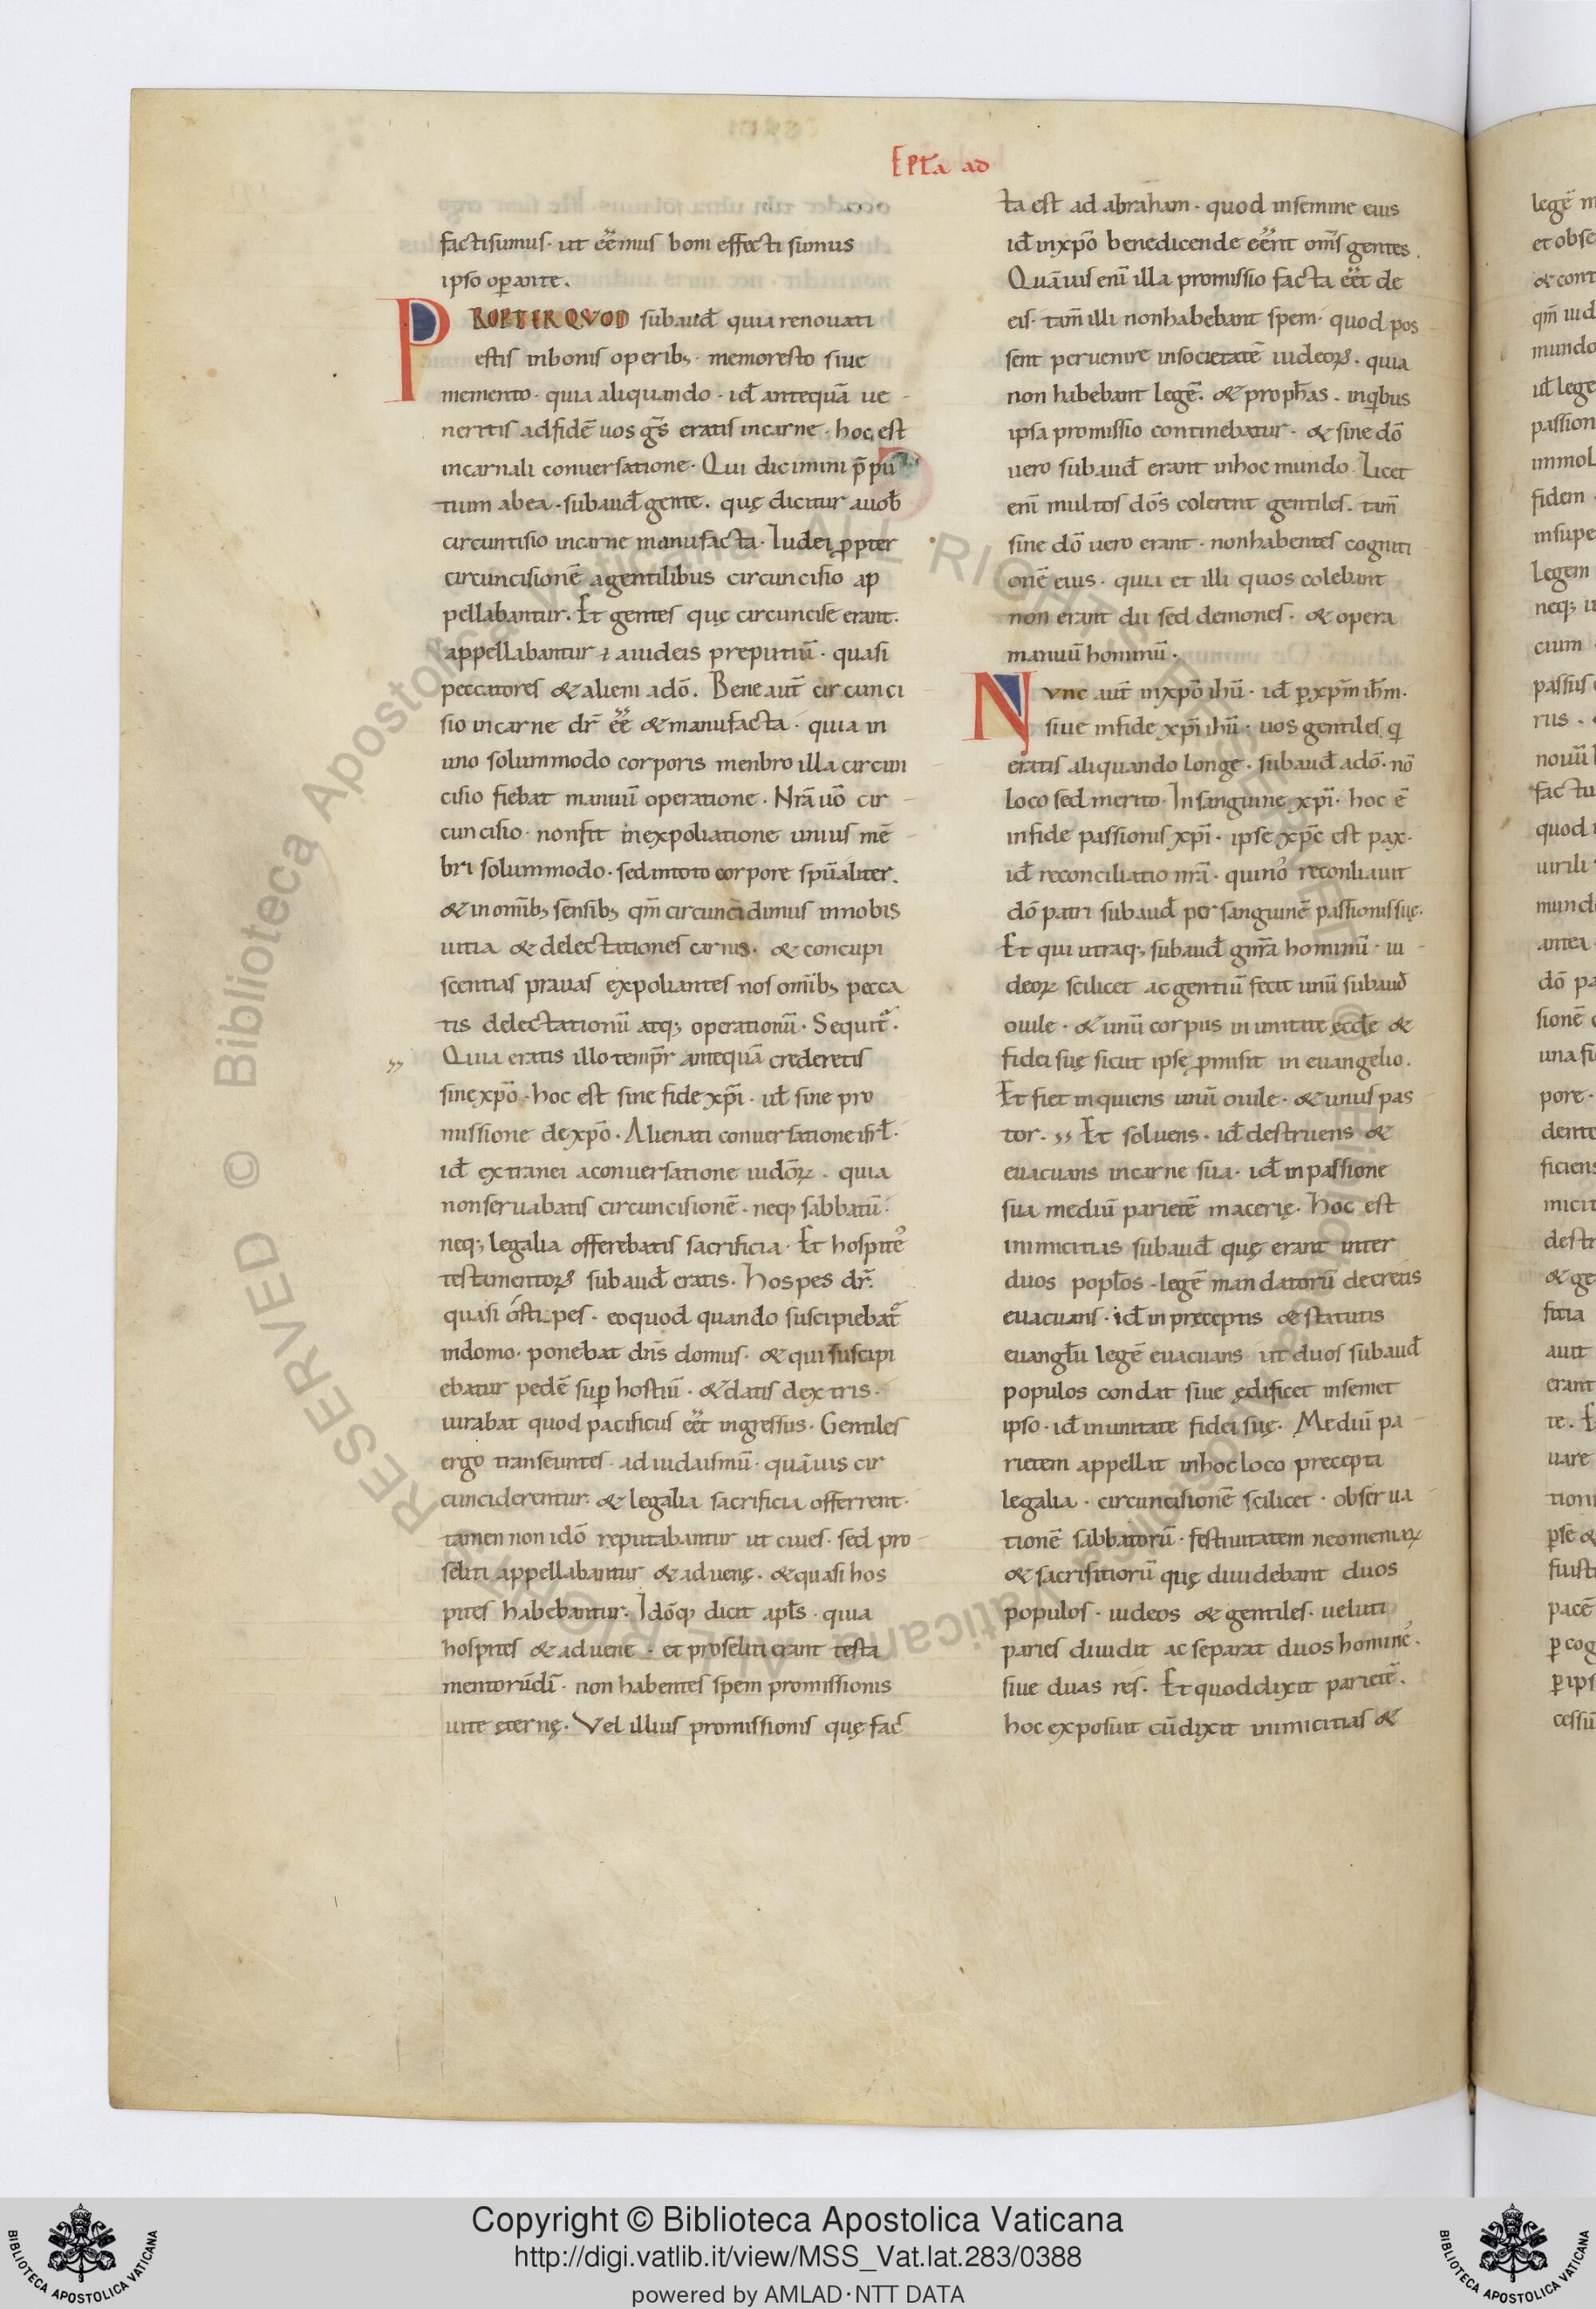 Epl̄a ad
factisumus· ut eēmus boni effecti sumus
ipso oꝑante.
PROPTERQVOD subaud̄ quia renouati
estis inbonis operibꝫ· memoresto siue
memento· quia aliquando· id̄ antequā ue
neritis adfidē uos gs̄ eratis incarne· hoc est
incarnali conuersatione· Qui dicimini p̄pu
tium abea· subaud̄ gente· quę dicitur auob̄
circuntisio incarne manufacta· Iudei ꝓpter
circuncisionē agentilibus circuncisio ap
pellabantur. Et gentes quę circuncise erant.
appellabantur aiudeis preputiū· quasi
peccatores & alieni adō. Bene aut̄ circunci
sio incarne dr̄ eē & manufacta· quia in
uno solummodo corporis menbro illa circun
cisio fiebat manuū operatione· Nrā uō cir
cuncisio· nonfit inexpoliatione unius mē
bri solummodo· sedintoto corpore spūaliter.
& inomībꝫ sensibꝫ qm̄ circuncidimus innobis
uitia & delectationes carnis· & concupi
scentias prauas expoliantes nos omībꝫ pecca
tis delectationū atqꝫ operationū· Sequit᷑·
Quia eratis illo tempr̄ antequā crederetis
sinexpō· hoc est sine fidexpī· ul̄ sine pro
missione dexpō· Alienati conuersatione isrl̄·
id̄ extranei aconuersatione iudōꝝ· quia
nonseruabatis circuncisionē· neqꝫ sabbatū·
neqꝫ legalia offerebatis sacrificia· Et hospite᾽
testamentoꝝ subaud̄ eratis. Hospes dr̄.
quasi ostipes· eoquod quando suscipiebat᷑
indomo· ponebat dn̄s domus· & qui suscipi
ebatur pedē suꝑ hostiū· & datis dextris·
iurabat quod pacificus eēt ingressus· Gentiles
ergo transeuntes· ad iudaismū· quāuis cir
cunciderentur· & legalia sacrificia offerrent·
tamen non idō reputabantur ut ciues· sed pro
seliti appellabantur & aduenę· & quasi hos
pites habebantur. Idōqꝫ dicit apl̄s· quia
hospites & aduene· et proseliti erant testa
mentorūdī· non habentes spem promissionis
uite ęternę. Vel illius promissionis quę fac
ta est ad abraham· quod insemine eius
id̄ inxpō benedicende eēnt oms̄ gentes.
Quāuis enī illa promissio facta eēt de
eis· tam̄ illi nonhabebant spem· quod pos
sent peruenire insocietatē iudeoꝝ. quia
non habebant legē. & proph̄as. inqibus
ipsa promissio continebatur· & sine dō
uero subaud̄ erant inhoc mundo. Licet
enī multos dōs colerent gentiles. tam̄
sine dō uero erant· nonhabentes cogniti
onē eius· quia et illi quos colebant
non erant dii sed demones· & opera
manuū hominū·
Nvnc aut̄ inxpō ihū· id̄ ꝑxpm̄ ih̄m·
siue infide xpī ihū· uos gentiles q
eratis aliquando longe· subaud̄ adō· nō
loco sed merito· In sanguine xpī· hoc ē
infide passionis xpī· ipse xpc̄ est pax·
id̄ reconciliatio nrā· quino᾽ reconliauit
dō patri subaud̄ per sanguinē passionis suę·
Et qui utraqꝫ subaud̄ gnr̄a hominū· iu
deoꝝ scilicet ac gentiū fecit unū subaud̄
ouile· & unū corpus in unitate ęccle &
fidei suę sicut ipse ꝓmisit in euangelio.
Et fiet inquiens unū ouile· & unus pas
tor· Et soluens· id̄ destruens &
euacuans incarne sua· id̄ in passione
sua mediū parietē macerię· Hoc est
inimicitias subaud̄ quę erant inter
duos popl̄os· legē mandatorū decretis
euacuans· id̄ in pręceptis & statutis
euangl̄ii legē euacuans ut duos subaud̄
populos condat siue ędificet insemet
ipso· id̄ inunitate fidei suę. Mediū pa
rietem appellat inhoc loco precepta
legalia· circuncisionē scilicet· obserua
tionē sabbatorū· festiuitatem neomeniaꝝ
& sacrifitiorū quę diuidebant duos
populos· iudeos & gentiles· ueluti
paries diuidit ac separat duos homine᾽·
siue duas res. Et quod dixit parietē.
hoc exposuit cū dixit inimicitias &
Copyright © Biblioteca Apostolica Vaticana
http://digi.vatlib.it/view/MSS_Vat.lat.283/0388
powered by AMLAD·NTT DATA